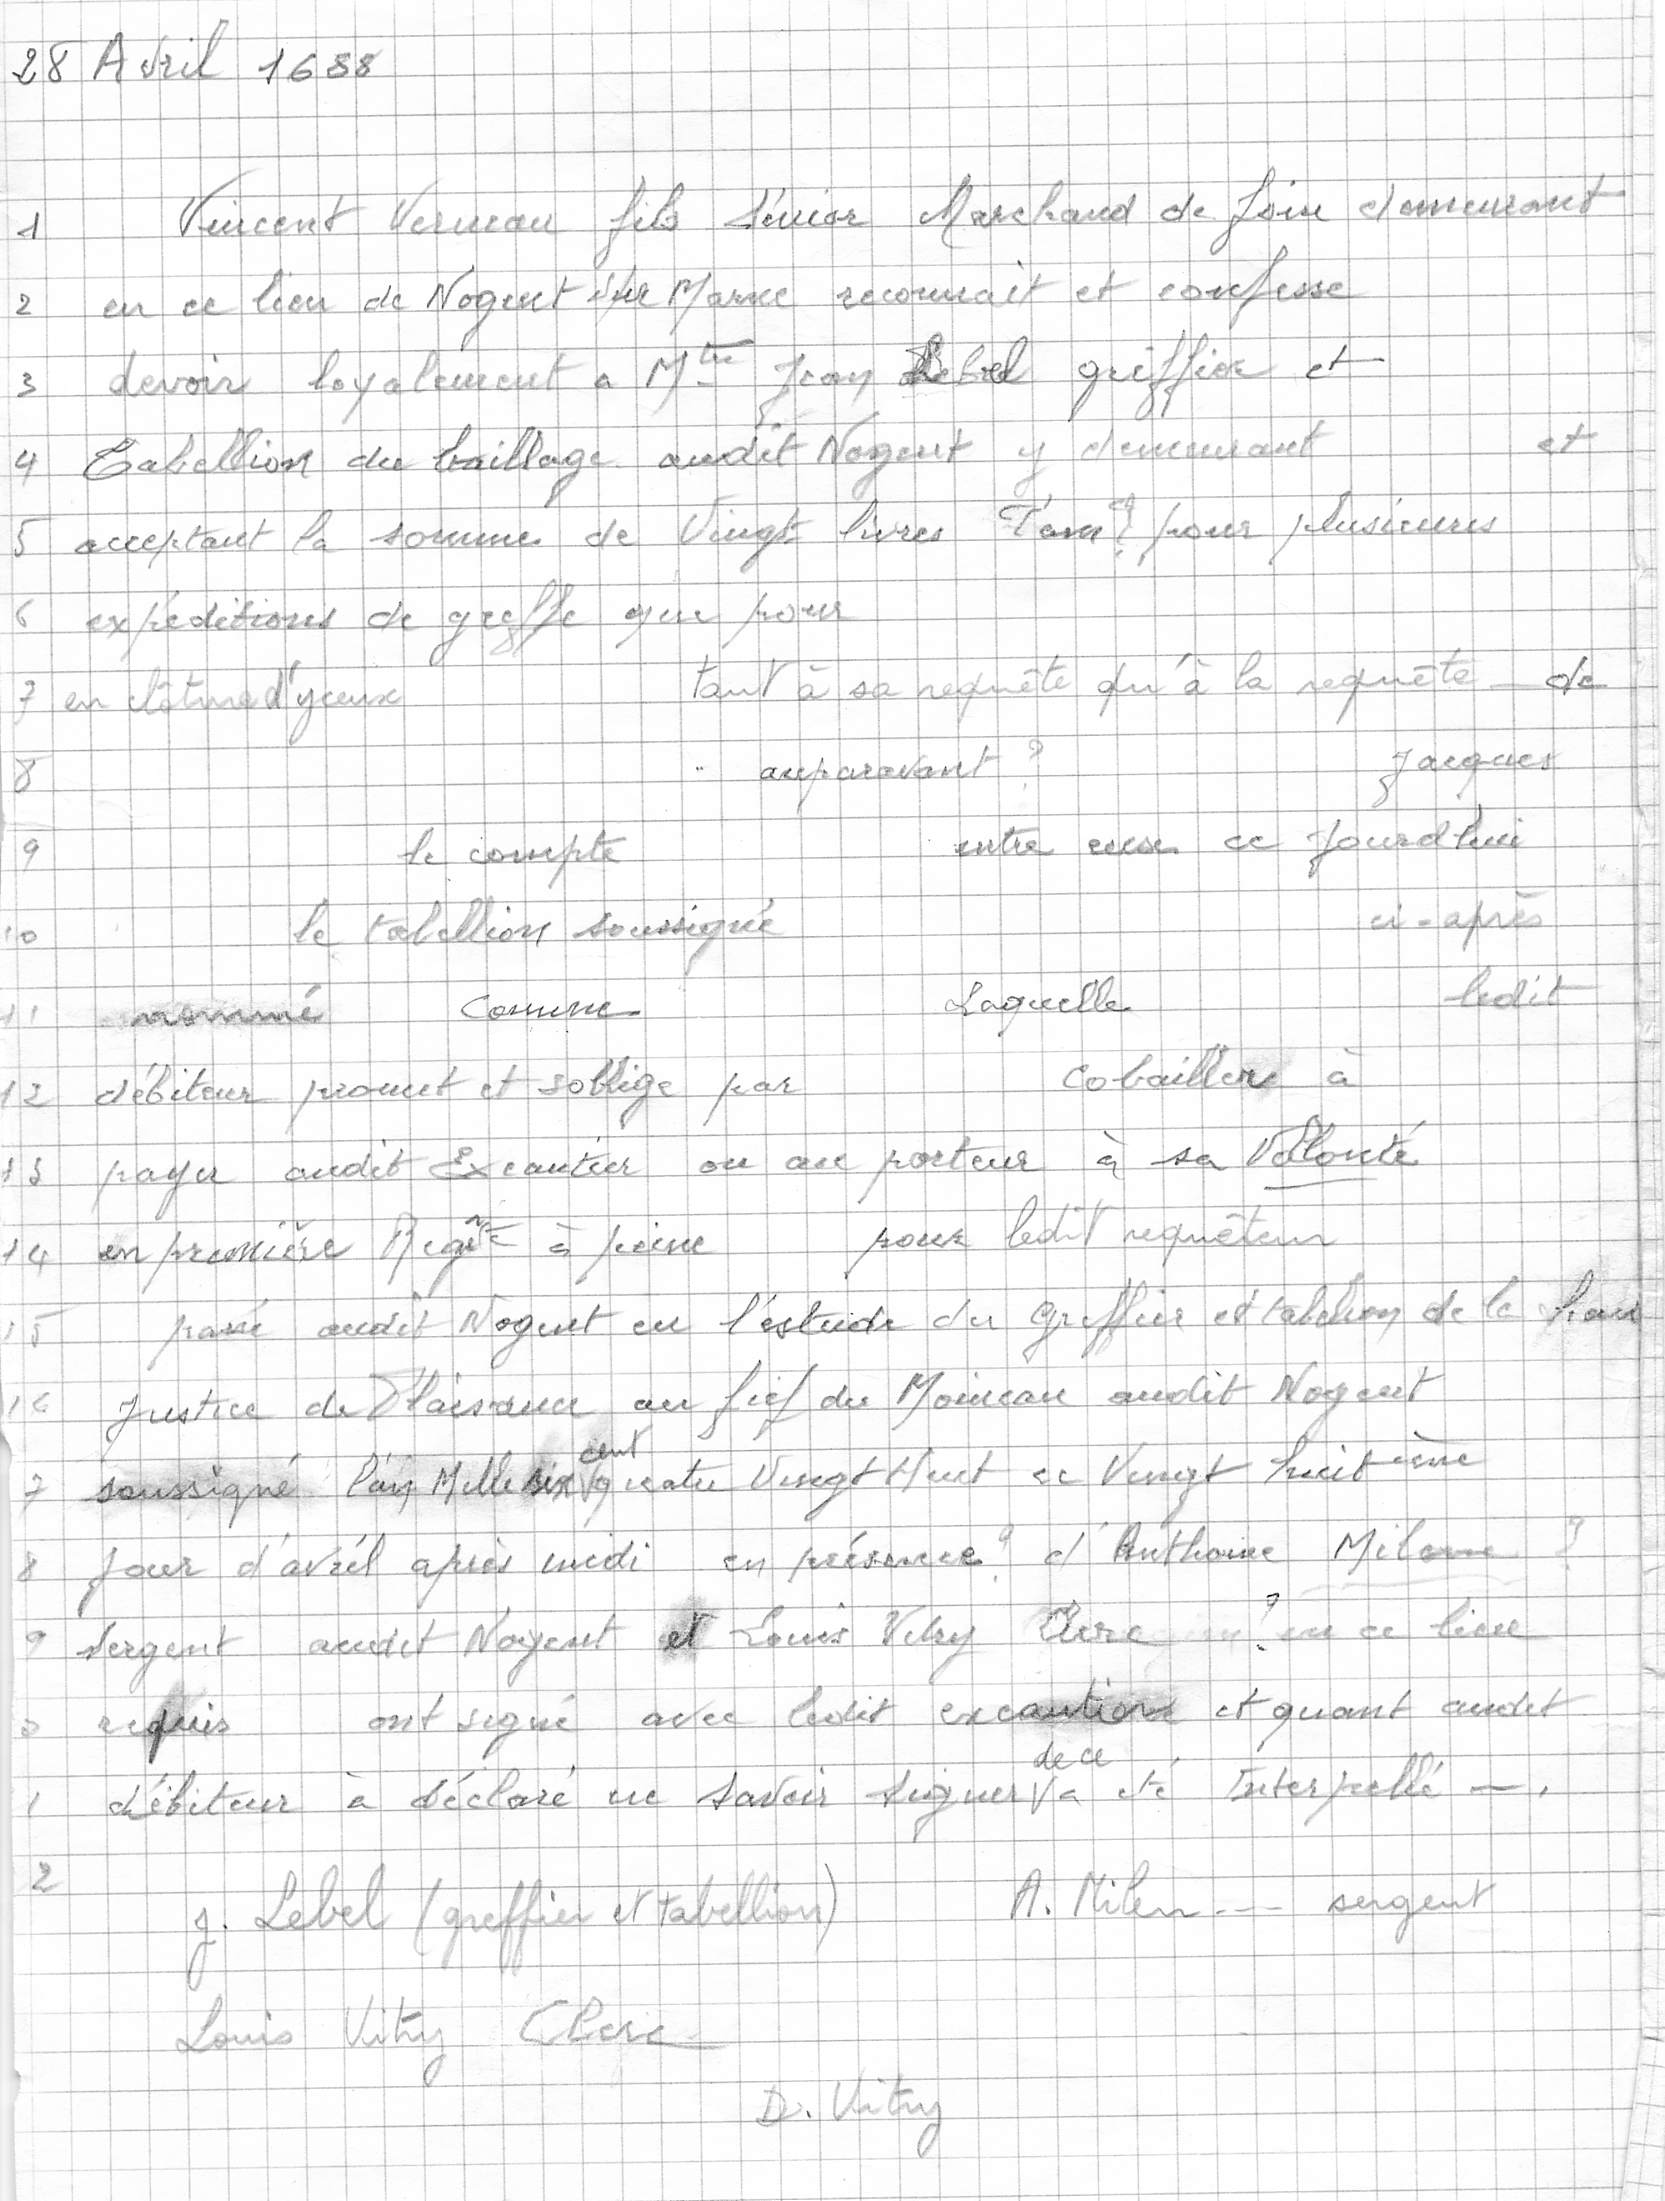 28 Avril 1688
1 Vincent Verneau fils Sénior Marchand de foin demeurant
2 en ce lieu de Nogent sur Marne reconnait et confesse
3 devoir loyalement a Mtre Jean Lebel griffier et
4 Tabellion du baillage audit Nogent y demeurant et
5 acceptant la somme de Vingt livres Tam? pour plusieurs
6 expéditions de greffe que pour
7 en clôture d'yceux tant à sa requête qu'à la requête - de
8 " auparavant ? Jacques
9 le compte entre eux ce Jourd'hui
10 le tabellion soussigné ci-après
11 nommé Comme Laquelle ledit
12 débiteur promet et soblige par Cobailler à
13 payer audit Excautier ou au porteur à sa Volonté
14 en première Reqte à peine pour ledit requêteur
15 passé audit Nogent en l'estude du Greffier et tabelion de la hau
16 Justice de Plaisance au fief du Moineau audit Nogent
7 soussigné l'an Mille six cent quatre Vingt Huit ce Vingt huitième
8 Jour d'avril après midi en présence ? d'Anthoine Milene ?
9 Sergent audit Nogent et Louis Vitry Clerc ? en ce lieu
0 requis ont signé avec ledit excaution et quant audit
1 débiteur à déclaré ne savoir signer de ce a été Interpellé - .
2
J. Lebel (greffier et tabellion) A. Milen --- sergent
Louis Vitry Clerc
D. Vitry